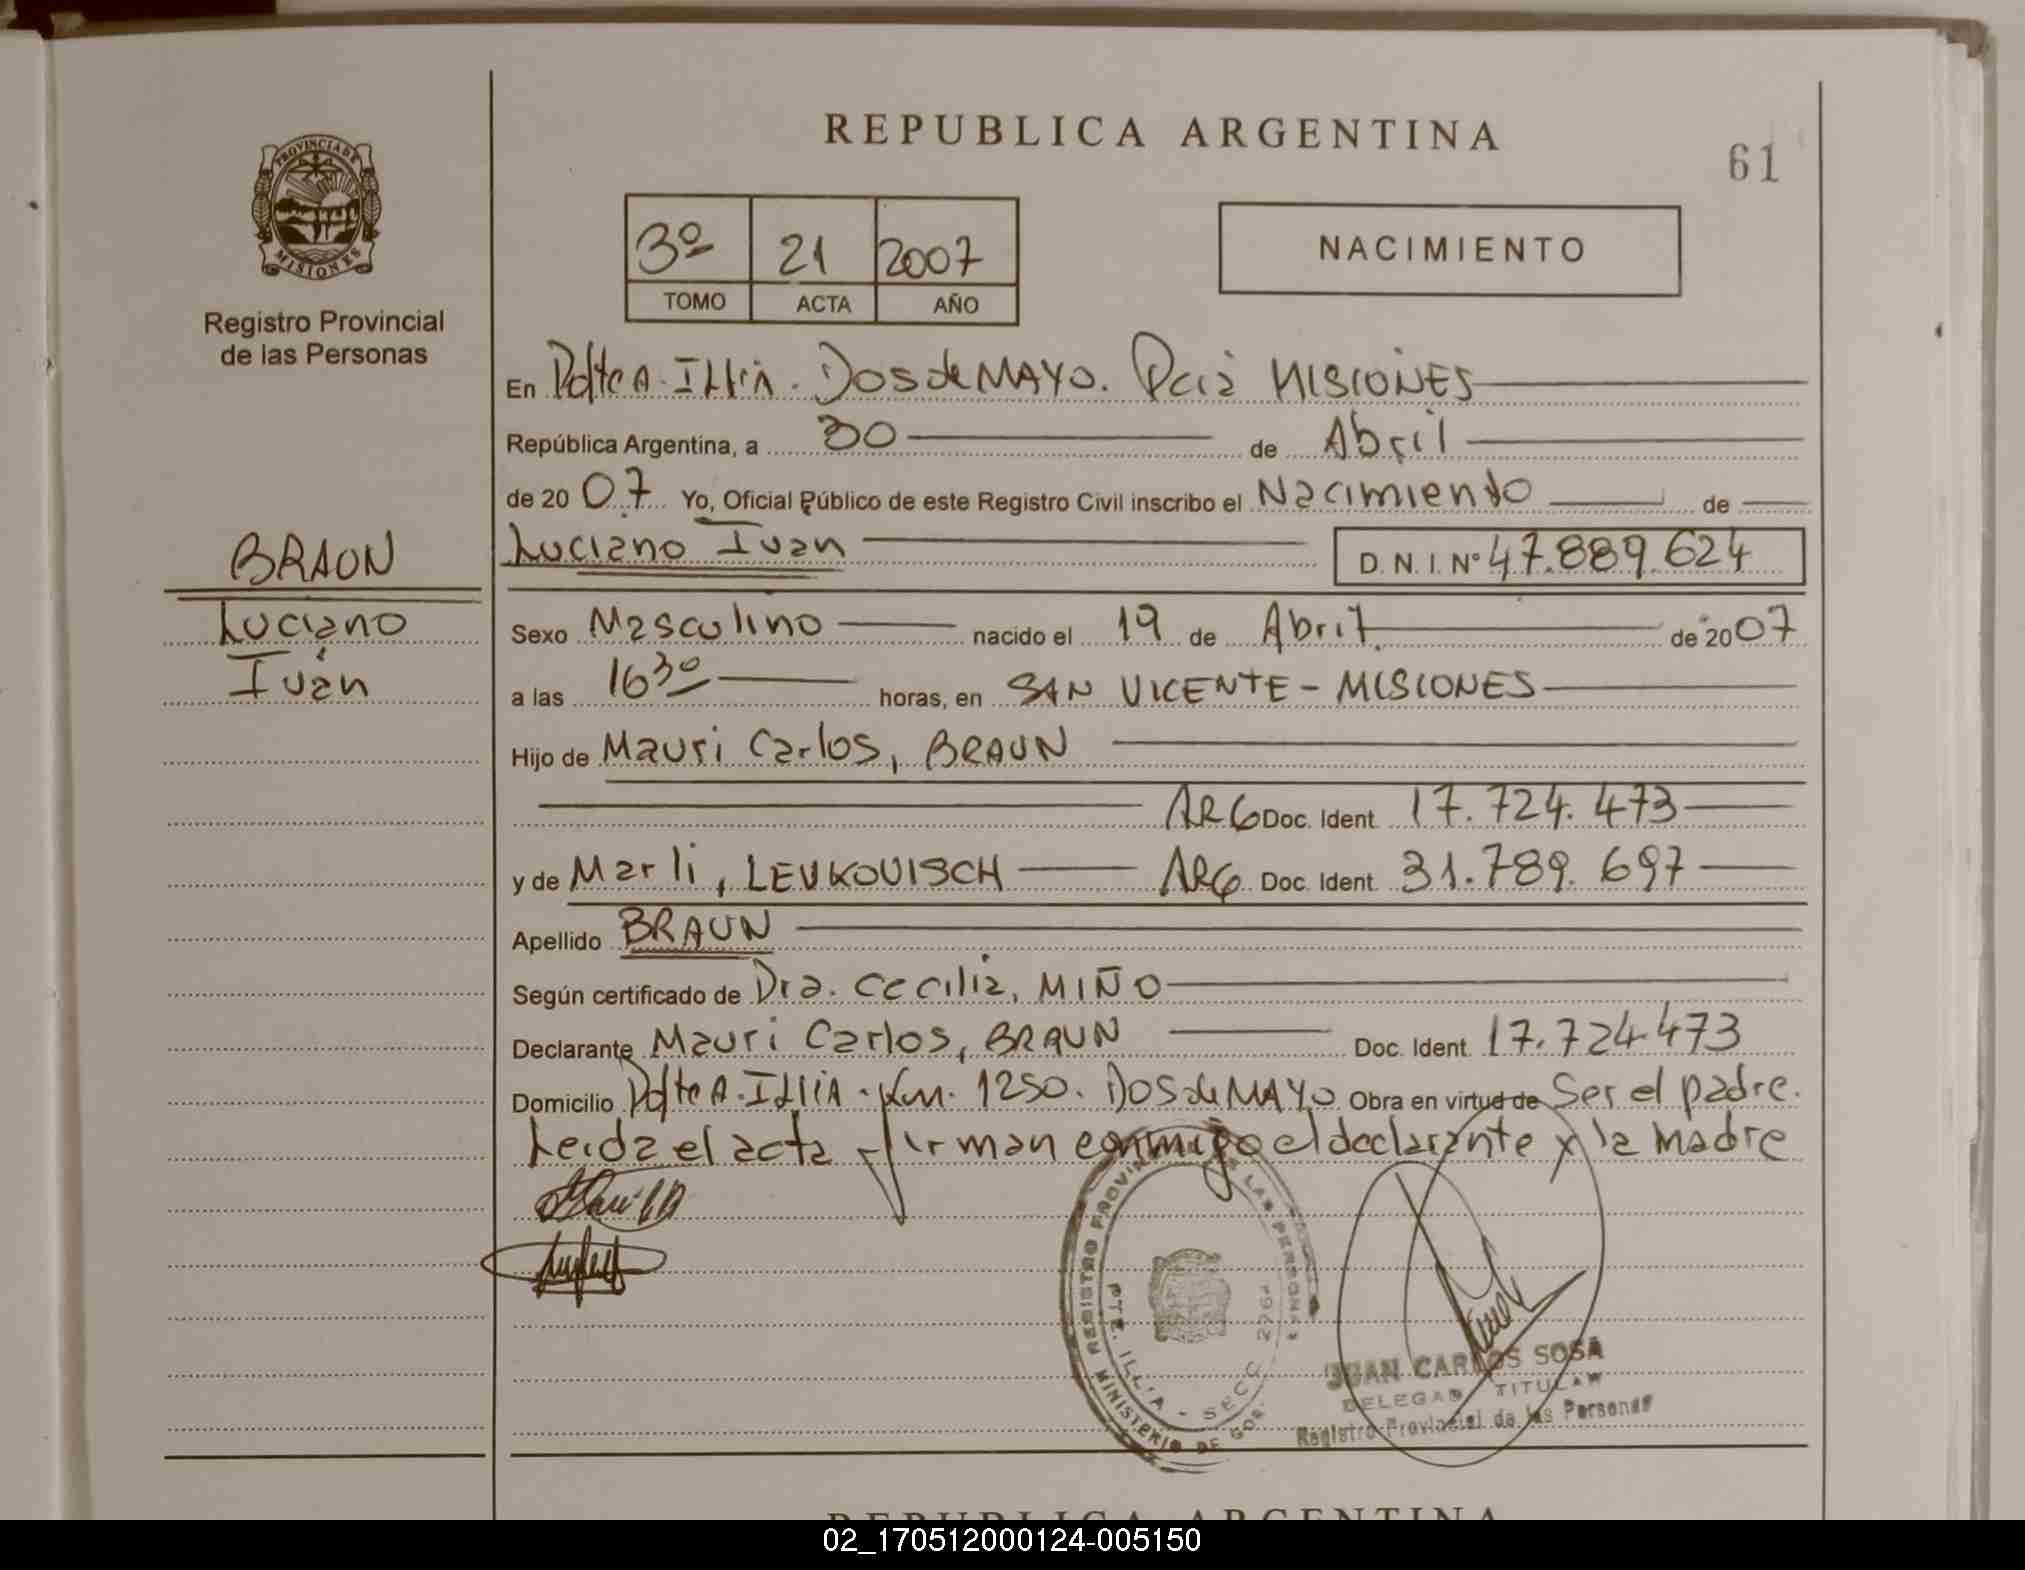 REPUBLICA ARGENTINA
61
PROVINCIA DE MISIONES
Registro Provincial
de las Personas
3º 21 2007
TOMO ACTA AÑO
NACIMIENTO
En Pdte A. Illia. Dos de MAYO. Pcia MISIONES
República Argentina, a 30 de Abril
de 2007 Yo, Oficial Público de este Registro Civil inscribo el Nacimiento de
Luciano Ivan D. N. I. Nº 47.889.624
BRAUN
Luciano
Iván
Sexo Masculino nacido el 19 de Abril de 2007
a las 16 30 horas, en SAN VICENTE - MISIONES
Hijo de Mauri Carlos, BRAUN
ARG Doc. Ident. 17.724.473
y de Marli, LEVKOVISCH ARG Doc. Ident. 31.789.697
Apellido BRAUN
Según certificado de Dra. Cecilia, MIÑO
Declarante Mauri Carlos, BRAUN Doc. Ident. 17.724.473
Domicilio Pdte A. Illia. Km. 1250. Dos de MAYO Obra en virtud de Ser el padre.
Leida el acta firman conmigo el declarante y la Madre
REGISTRO PROVIN LAS PERSONAS
PTE. ILLIA - SECC 2964
MINISTERIO DE GOB.
JUAN CARLOS SOSA
DELEGADO TITULAR
Registro Provincial de las Personas
REPUBLICA ARGENTINA
02_170512000124-005150